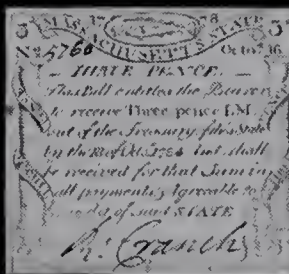 17 78
MASSACHUSETTS STATE
No 5760 Octo: 16
THREE PENCE.
This Bill entitles the Bearer
to receive Three pence L.M.
out of the Treasury of this State
by the 18 of Oct. 1784 but shall
be received for that Sum in
all payments Agreeable to
of said STATE
R: Cranch